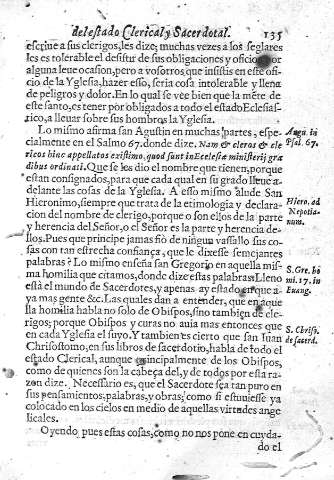 del estado Clerical y Sacerdotal. 135
escriue a sus clerigos, les dize; muchas vezes a los seglares
les es tolerable el desistir de sus obligaciones y oficio por
alguna leue ocasion, pero a vosotros que insistis en este ofi-
cio de la Yglesia, hazer esso, seria cosa intolerable y llena
de peligros y dolor. En lo qual se vee bien que la mẽte de
este santo, es tener por obligados a todo el estado Eclesiás-
tico, a lleuar sobre sus hombros la Yglesia.
Lo mismo afirma san Agustin en muchas partes, espe-
cialmente en el Salmo 67. donde dize. Nam & cleros & cle
ricos hinc appellatos existimo, quod sunt in Ecclesiæ ministerij gra
dibus ordinati. Que se les dio el nombre que tienen, porque
estan consignados, para que cada qual en su grado lleue a-
delante las cosas de la Yglesia. A esso mismo alude San
Hieronimo, siempre que trata de la etimologia y declara-
cion del nombre de clerigo, porque o son ellos de la parte
y herencia del Señor, o el Señor es la parte y herencia de-
llos. Pues que principe jamas fió de ningun vassallo sus co-
sas con tan estrecha confiança, que le dixesse semejantes
palabras? Lo mismo enseña san Gregorio en aquella mis-
ma homilia que citamos, donde dize estas palabras: Lleno
està el mundo de Sacerdotes, y apenas ay estado en que a-
ya mas gente &c. Las quales dan a entẽder, que en aque
lla homilia habla no solo de Obispos, sino tambien de cle-
rigos; porque Obispos y curas no auia mas entonces que
en cada Yglesia el suyo. Y tambien es cierto que san Juan
Chrisostomo, en sus libros de sacerdotio, habla de todo el
estado Clerical, aunque principalmente de los Obispos,
como de quienes son la cabeça del, y de todos por esta ra-
zon dize. Necessario es, que el Sacerdote sea tan puro en
sus pensamientos, palabras, y obras; como si estuuiesse ya
colocado en los cielos en medio de aquellas virtudes ange
licales.
Oyendo pues estas cosas, como no nos pone en cuyda-
do el
Augu. in
Psal. 67.
Hiero. ad
Nepotia-
num.
S. Gre. ho
mi. 17. in
Euang.
S. Chriso.
de sacerd.